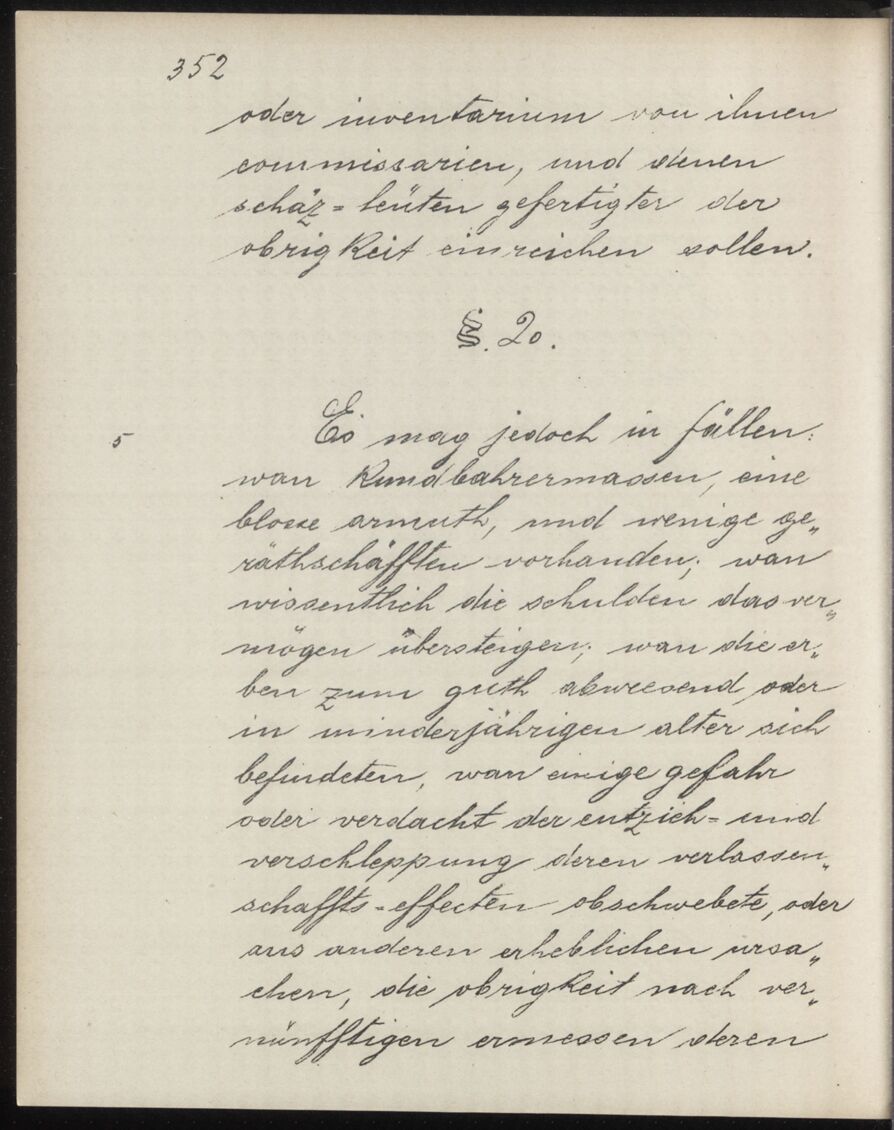 352
oder inventarium von ihnen
commissarien, und denen
schäz=leüten gefertigter der
obrigkeit einreichen sollen.
§. 20.
5
Es mag jedoch in fällen:
wan kundbahrermassen, eine
blosse armuth, und wenige ge„
räthschäfften vorhanden; wan
wissentlich die schulden das ver„
mögen übersteigen; wan die er„
ben zum guth abweesend, oder
in minderjährigen alter sich
befindeten, wan einige gefahr
oder verdacht der entzieh= und
verschleppung deren verlassen„
schaffts=effecten obschwebete, oder
aus anderen erheblichen ursa„
chen, die obrigkeit nach ver„
nünfftigen ermessen deren